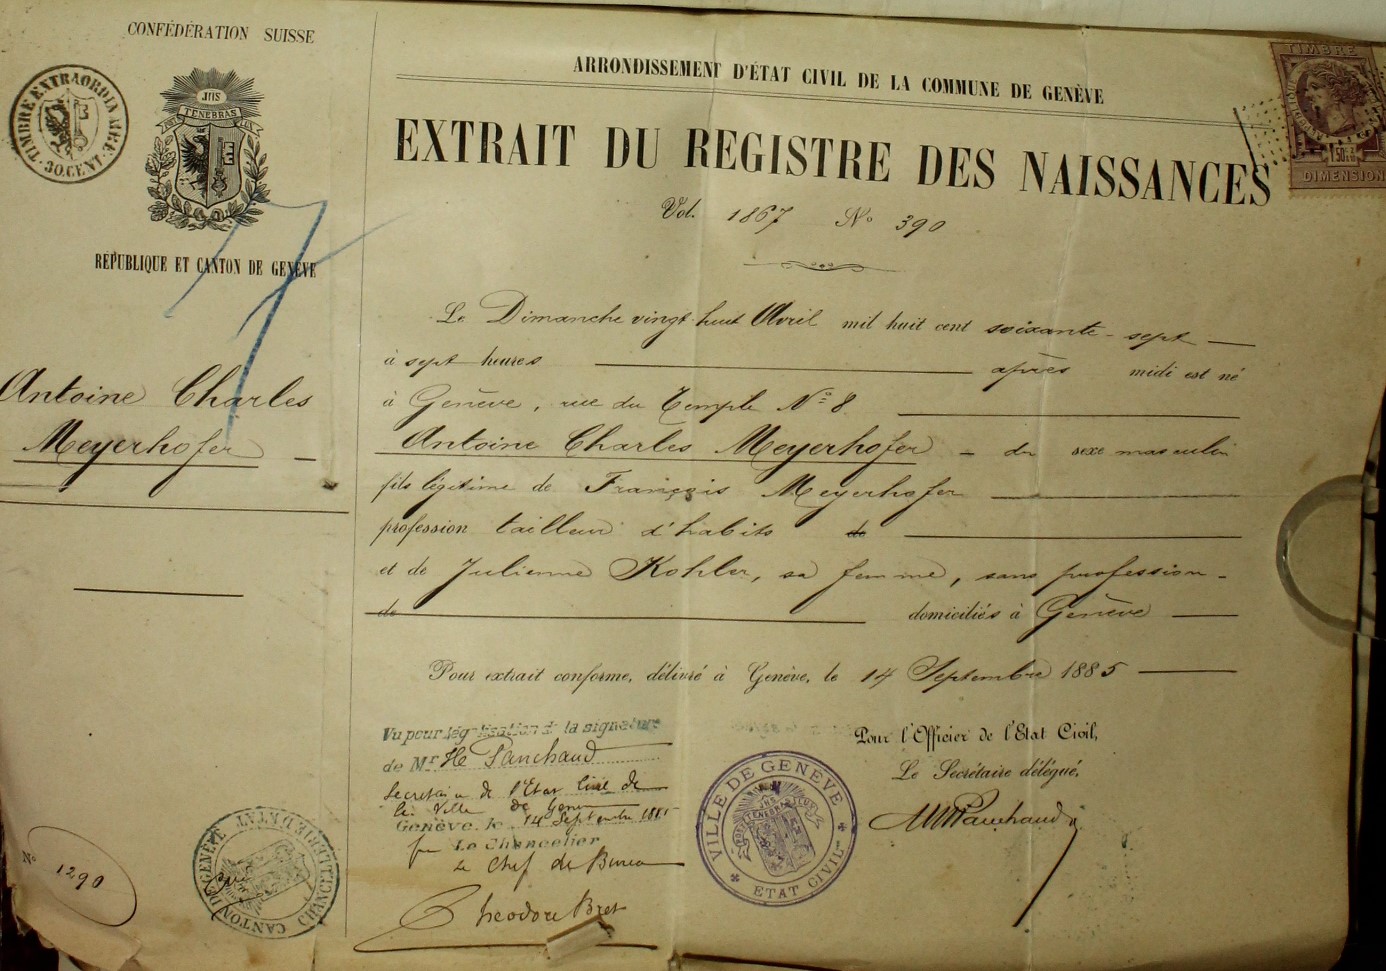 CONFÉDÉRATION SUISSE
TIMBRE EXTRAORDINAIRE
30.CENT.
JHS
POST TENEBRAS LUX
RÉPUBLIQUE ET CANTON DE GENÈVE
Antoine Charles
Meyerhofer
No 1290
CANTON DE GENÈVE CHANCELLERIE D'ETAT
ARRONDISSEMENT D'ÉTAT CIVIL DE LA COMMUNE DE GENÈVE
EXTRAIT DU REGISTRE DES NAISSANCES
TIMBRE
1 50
DIMENSION
Vol. 1867 No 390
Le Dimanche vingt huit Avril mil huit cent soixante-sept
à sept heures après midi est né
à Genève, rue du Temple No 8
Antoine Charles Meyerhofer du sexe masculin
fils légitime de François Meyerhofer
profession tailleur d'habits de
et de Julienne Kohler, sa femme, sans profession
de domiciliés à Genève
Pour extrait conforme, délivré à Genève, le 14 Septembre 1885
Vu pour légalisation de la signature
de Mr Panchaud
Secretaire de l'Etat Civil de
la Ville de Genève
Genève, le 14 Septembre 1885
Le Chancelier
Le Chef de Bureau
Theodore Bret
VILLE DE GENÈVE
ETAT CIVIL
Pour l'Officier de l'Etat Civil,
Le Secrétaire délégué,
Panchaud